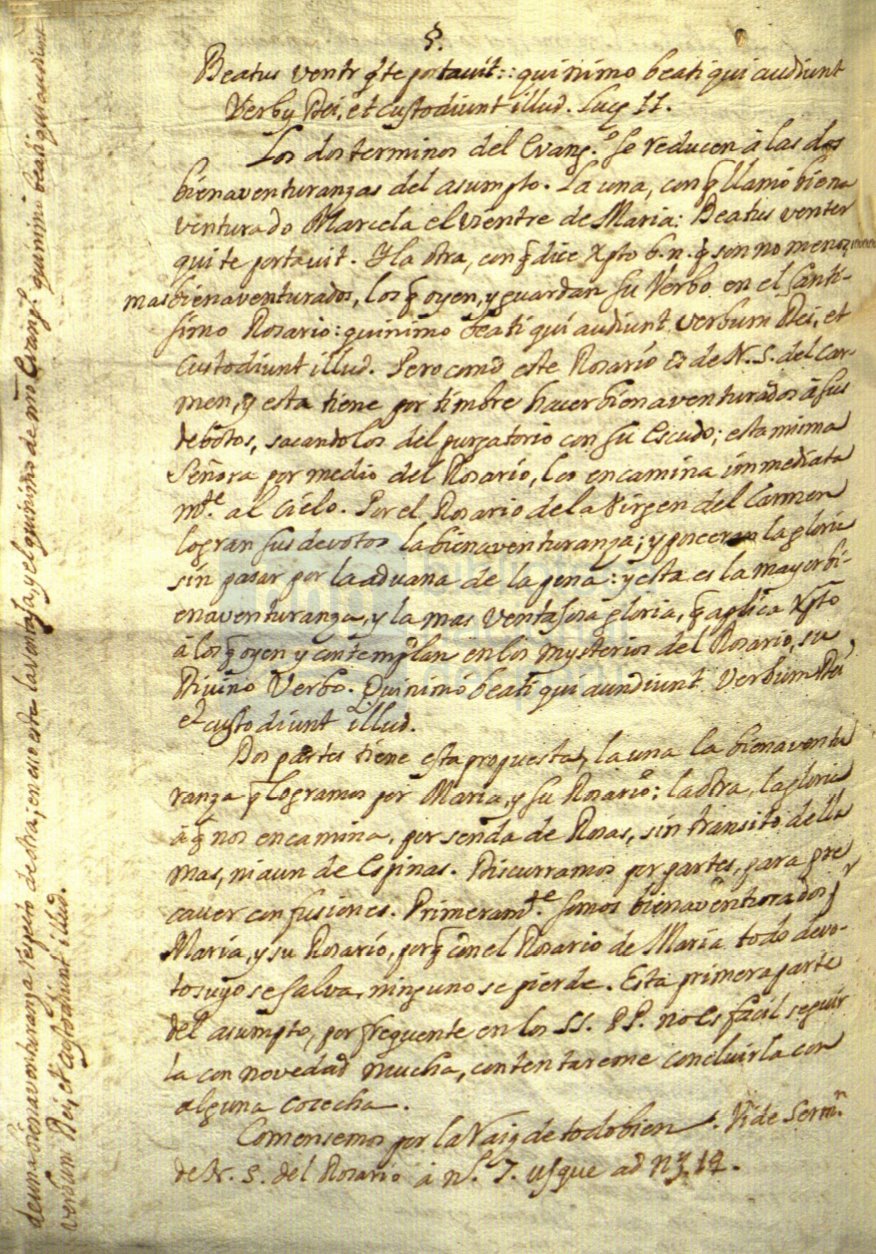 §.
Beatus ventr q̃ te portauit:: quinimo beati qui audiunt
Verbũ Dei, et custodiunt illud. Lucę II.
Los dos terminos del Evang.º se reducen à las dos
bienaventuranzas del asumpto. La una, con q̃ llamò biena
venturado Marcela el vientre de Maria: Beatus venter
qui te portauit. Y la otra, con q̃ dice Xpto b.n. q̃ son no menos
mas bienaventurados, los q̃ oyen, y guardan su Verbo en el Santi-
simo Rosario: quinimo beati qui audiunt verbum Dei, et
custodiunt illud. Pero como este Rosario es de N. S. del Car-
men, y esta tiene por timbre hacer bienaventurados à sus
debotos, sacandolos del purgatorio con su escudo; esta mima
Señora por medio del Rosario, los encamina immediata
mt.e al Cielo. Por el Rosario de la Virgen del Carmen
logran sus devotos la bienaventuranza; y poceeran la gloria
sin pasar por la aduana de la pena: y esta es la mayor bi-
enaventuranza, y la mas ventajosa gloria, q̃ aplica Xpto
à los q̃ oyen y contemplan en los mysterios del Rosario, su
Divino Verbo. Quinimò beati qui aundiunt Verbum Dei
et custodiunt illud.
Dos partes tiene esta propuesta, la una la bienaventu
ranza q̃ logramos por Maria, y su Rosario: la otra, la gloria
à q̃ nos encamina, por senda de Rosas, sin transito de lla
mas, ni aun de Espinas. Discurramos por partes, para pre
caver confusiones. Primeramt.e somos bienaventurados pr
Maria, y su Rosario, porq̃ con el Rosario de Maria todo devo-
to suyo se salva, ninguno se pierde. Esta primera parte
del asumpto, por frequente en los SS. PP. no es facil seguir
la con novedad mucha, contentareme concluirla con
alguna cocecha.
Comensemos por la Raiz de todo bien. Vide Serm.n
de N. S. del Rosario à n.º 7. usque ad nũ 14.
de una bienaventuranza respecto de otra; en eso esta la ventaja, y el quinimo de nrõ Evang.º quinimo beati qui audiunt
verbum Dei, et custodiunt illud.